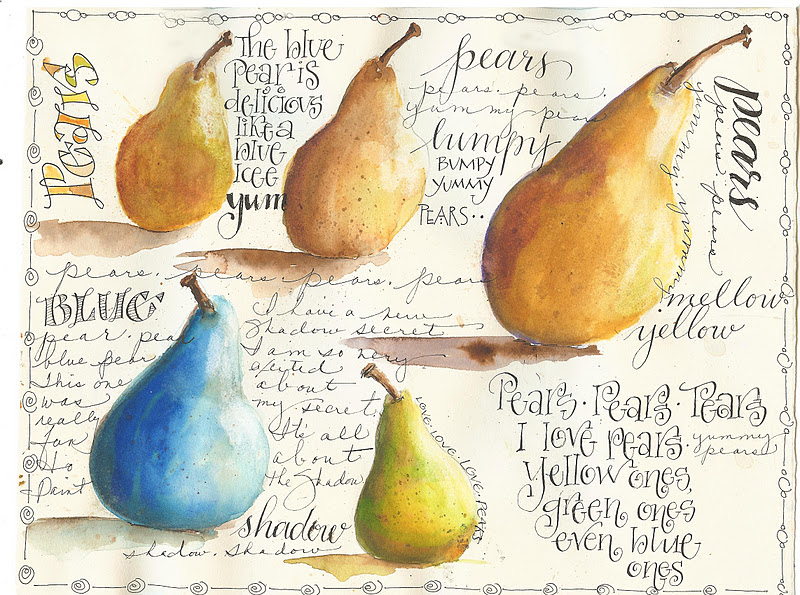 Pears
The blue
Pear is
delicious
like a
blue
Icee
yum
pears
pears. pears. pears.
yummy pears
lumpy
BUMPY
YUMMY
PEARS..
pears
pears. pears. pears
yummy. yummy. yummy
mellow
yellow
pears. pears. pears. pears. pears
BLUE
pear. pear
blue pear
This one
was
really
fun
to
Paint
I have a new
shadow secret
I am so very
about
my secret.
It's all
about
the shadow
shadow
shadow. shadow.
LOVE. LOVE. LOVE. LOVE. PEARS
Pears. Pears. Pears
I love pears.
yummy
pears
yellow ones,
green ones
even blue
ones